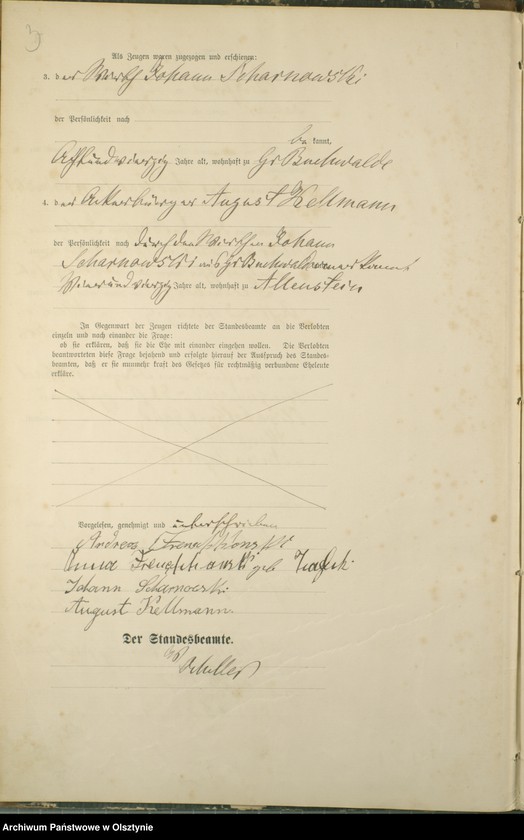 3
Als Zeugen waren zugezogen und erschienen:
3. der Wirth Johann Scharnowski
der Persönlichkeit nach
be kannt,
Achtundvierzig Jahre alt, wohnhaft zu Gr Buchwalde
4. der Ackerbürger August Kellmann
der Persönlichkeit nach durch den Wirthen Johann
Scharnowski aus Gr Buchwalde anerkannt
Vierundvierzig Jahre alt, wohnhaft zu Allenstein
In Gegenwart der Zeugen richtete der Standesbeamte an die Verlobten
einzeln und nach einander die Frage:
ob sie erklären, daß sie die Ehe mit einander eingehen wollen. Die Verlobten
beantworteten diese Frage bejahend und erfolgte hierauf der Ausspruch des Standes-
beamten, daß er sie nunmehr kraft des Gesetzes für rechtmäßig verbundene Eheleute
erkläre.
Vorgelesen, genehmigt und unterschrieben
Andreas
Anna geb
Johann Scharnowski
August Kellmann
Der Standesbeamte.
Archiwum Państwowe w Olsztynie